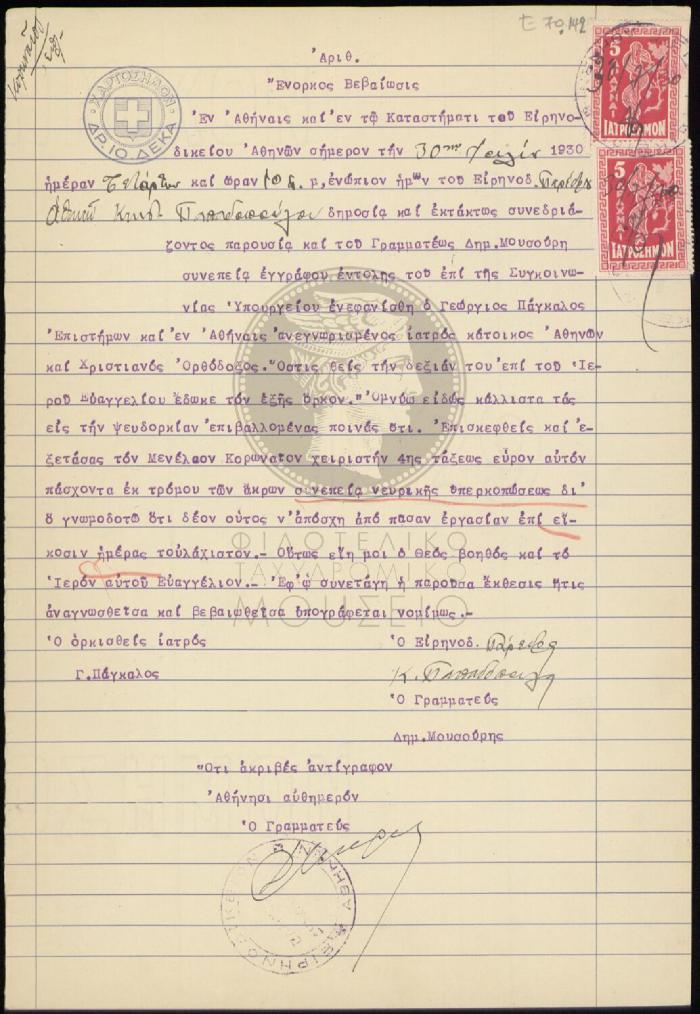 Ε 70.142
Ἀριθ.
Ἔνορκος Βεβαίωσις
ΧΑΡΤΟΣΗΜΟΝ
ΔΡ. 10 ΔΕΚΑ
5
ΔΡΑΧΜΑΙ
ΙΑΤΡΟΣΗΜΟΝ
5
ΔΡΑΧΜΑΙ
ΙΑΤΡΟΣΗΜΟΝ
Ἐν Ἀθήναις καί ἐν τῷ Καταστήματι τοῦ Εἰρηνο-
δικείου Ἀθηνῶν σήμερον τήν 30ην 1930
ἡμέραν Τετάρτην καί ὥραν 10 π.μ. ἐνώπιον ἡμῶν τοῦ Εἰρηνοδ. Παρέδρου
Ἀθηνῶν Κωνστ. Παπαδοπούλου δημοσίᾳ καί ἐκτάκτως συνεδριά-
ζοντος παρουσίᾳ καί τοῦ Γραμματέως Δημ. Μουσούρη
συνεπείᾳ ἐγγράφου ἐντολῆς τοῦ ἐπί τῆς Συγκοινω-
νίας Ὑπουργείου ἐνεφανίσθη ὁ Γεώργιος Πάγκαλος
Ἐπιστήμων καί ἐν Ἀθήναις ἀνεγνωρισμένος ἰατρός κάτοικος Ἀθηνῶν
καί Χριστιανός Ὀρθόδοξος. Ὅστις θείς τήν δεξιάν του ἐπί τοῦ Ἱε-
ροῦ Εὐαγγελίου ἔδωκε τόν ἑξῆς ὅρκον. "Ὀμνύω εἰδώς κάλλιστα τάς
εἰς τήν ψευδορκίαν ἐπιβαλλομένας ποινάς ὅτι. Ἐπισκεφθείς καί ἐ-
ξετάσας τόν Μενέλαον Κορωναῖον χειριστήν 4ης τάξεως εὗρον αὐτόν
πάσχοντα ἐκ τρόμου τῶν ἄκρων συνεπείᾳ νευρικῆς ὑπερκοπώσεως δι'
ὅ γνωμοδοτῶ ὅτι δέον οὗτος ν' ἀπόσχη ἀπό πᾶσαν ἐργασίαν ἐπί εἴ-
κοσιν ἡμέρας τοὐλάχιστον.- Οὕτως εἴη μοι ὁ Θεός βοηθός καί τό
Ἱερόν αὐτοῦ Εὐαγγέλιον.- Ἐφ' ᾧ συνετάγη ἡ παροῦσα ἔκθεσις ἥτις
ἀναγνωσθεῖσα καί βεβαιωθεῖσα ὑπογράφεται νομίμως.-
ΦΙΛΟΤΕΛΙΚΟ
ΤΑΧΥΔΡΟΜΙΚΟ
ΜΟΥΣΕΙΟ
Ὁ ὁρκισθείς ἰατρός
Γ. Πάγκαλος
Ὁ Εἰρηνοδ. Πάρεδρος
Κ. Παπαδόπουλος
Ὁ Γραμματεύς
Δημ. Μουσούρης
Ὅτι ἀκριβές ἀντίγραφον
Ἀθήνησι αὐθημερόν
Ὁ Γραμματεύς